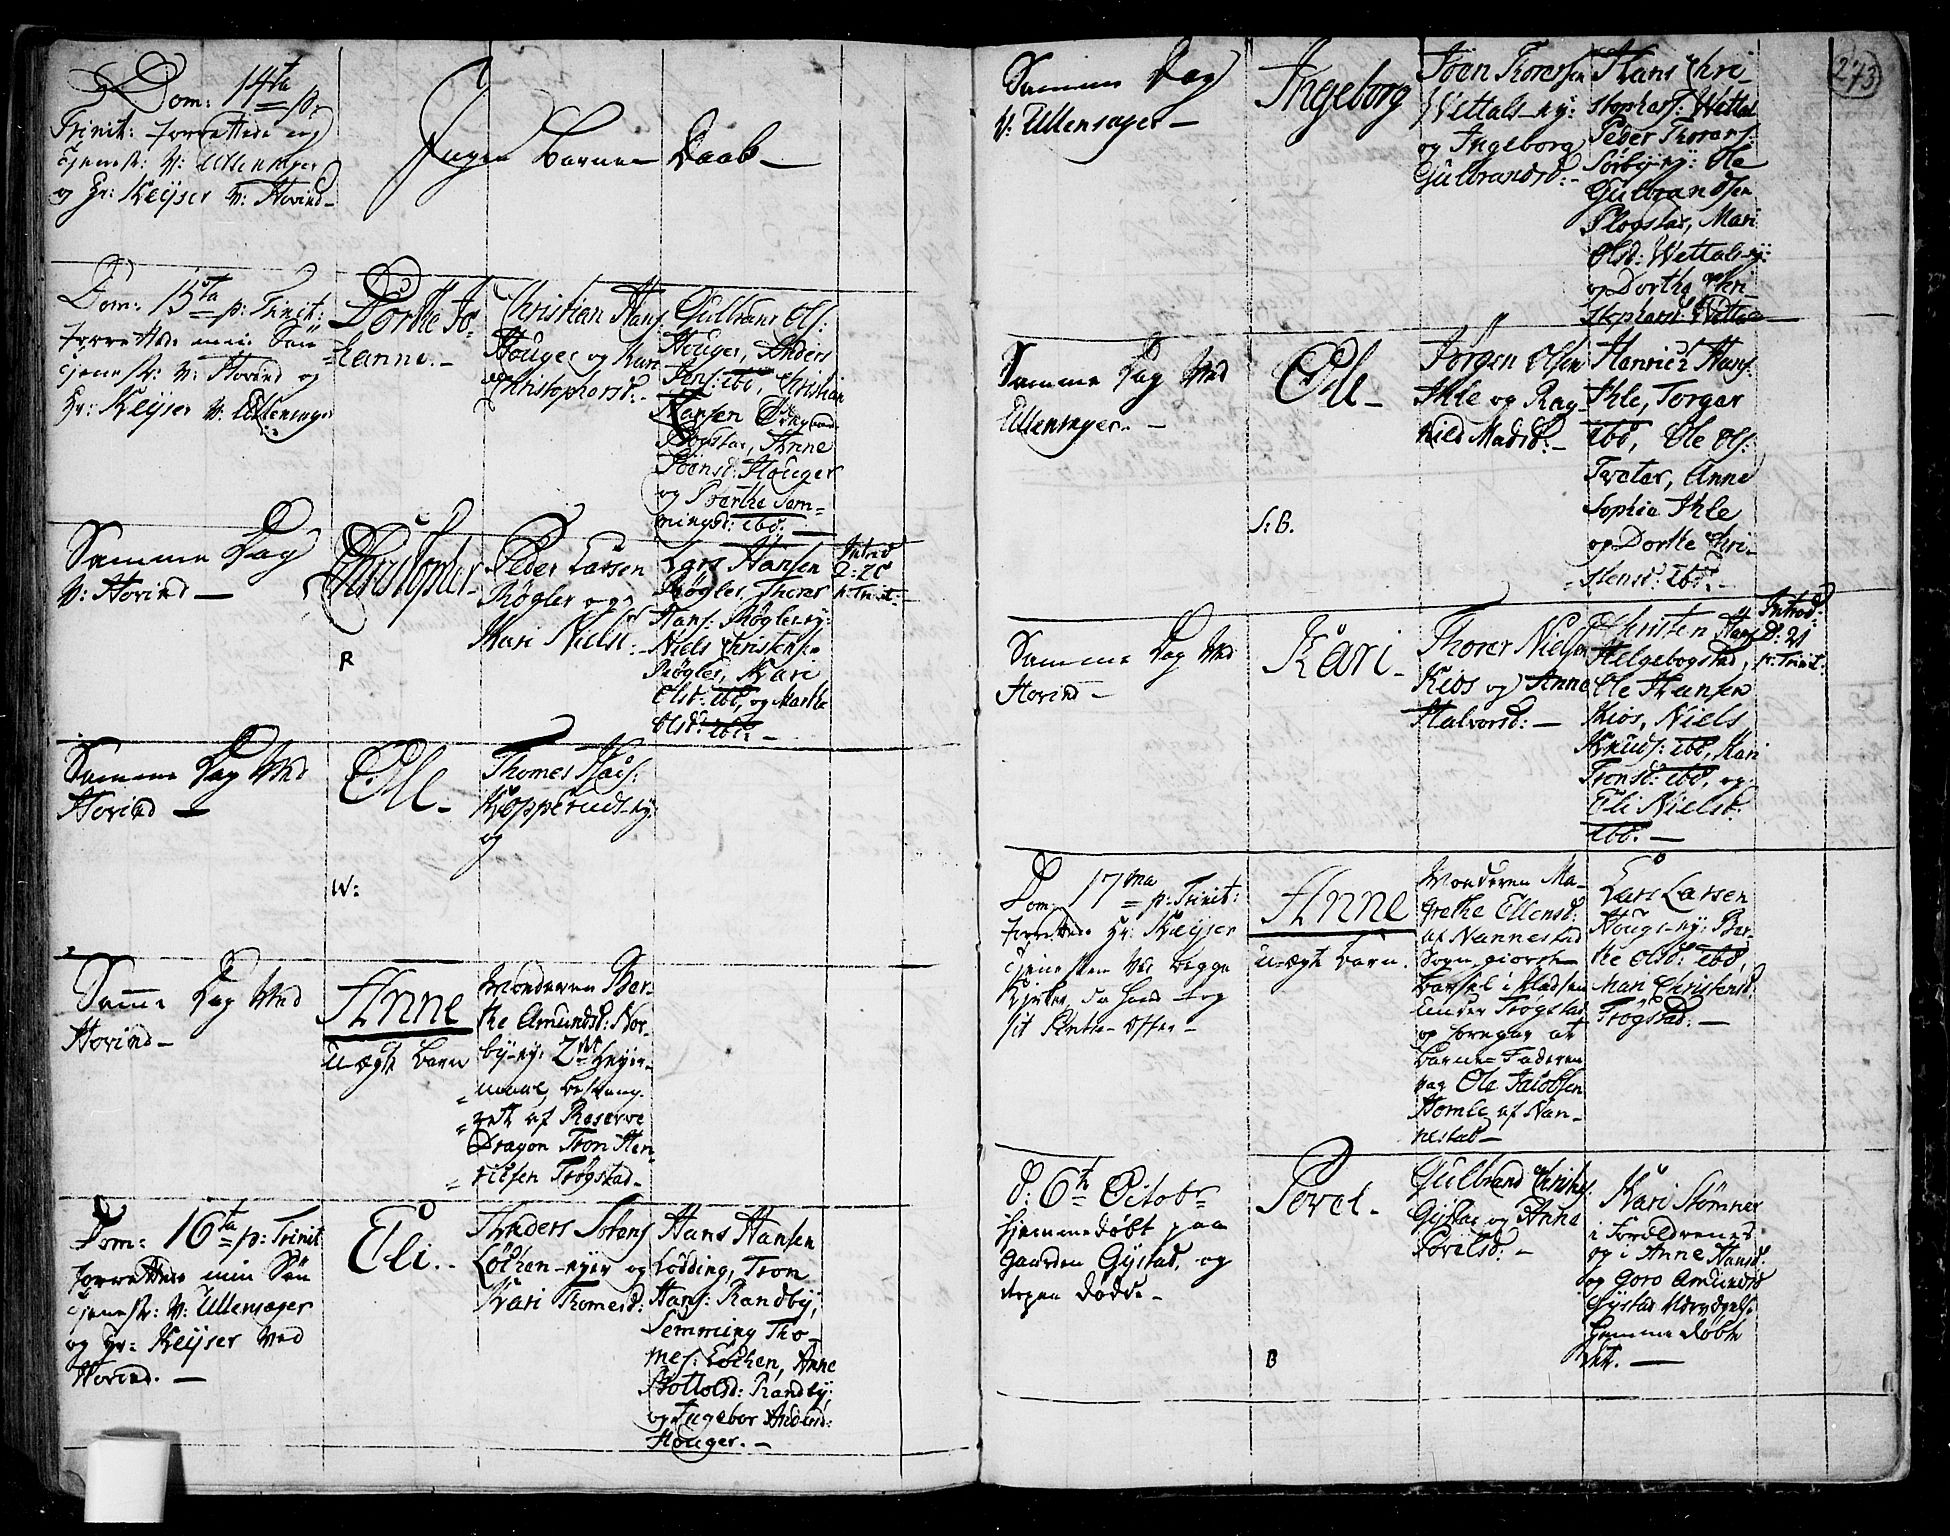 Dom: 14ta p:
Trinit: forrettede ieg
Tjenest: V: Ullensager
og Hr: Keijser V: Hovind
Ingen Barne Daab
Dom: 15ta p: Trinit:
forrettede min Søn
Tjenest: V: Hovind og
Hr: Keijser V: Ullensager
Dorthe Jo-
hanne.
Christian Hans:
Houger og Kari
Christophersd:
Gulbrand Ols:
Houger, Anders
Jens: ibd, Christian
Hansen
Bogstad, Anne
Joensd: Houger
og Dorthe Sem-
mingsd: ibd.
Samme Dag
V: Hovind
Christopher
R
Peder Larsen
Røgler og
Kari Nielsd:
Lars Hansen
Røgler, Thorer
Hans: Røgler ey:
Niels Christens:
Røgler, Kari
Olsd: ibd, og Marthe
Olsd: ibd.
Introd
D: 20
p: Trinit:
Samme Dag Ved
Hovind
Ole
W:
Thomes
Kopperuds-ey:
og
Samme Dag Ved
Hovind
Anne
uægte Barn
Moderen Ber-
the Amundsd: Nor-
by-ey: 2den Leyer-
maal, besvang-
ret af Reserve
Dragon Tron Hen-
richsen Trøgstad
Dom: 16ta p: Trinit
forrettede min Søn
Tjenest: V: Ullensager
og Hr: Keijser Ved
Hovind.
Eli.
Anders Sørens
Løchen-eyer og
Kari Thomesd:
Hans Hansen
Lødding, Tron
Hans: Randby,
Semming Tho-
mes: Løchen, Anne
Botholsd: Randby:
og Ingebor Andersd:
Houger.
273
Samme Dag
V: Ullensager
Ingeborg
Joen Thoresen
Wettals-ey:
og Ingeborg
Gulbrandsd:
Hans Chri-
stophers: Wettal
Peder Thorers:
Sørby-ey: Ole
Gulbrandsen
Plogstad, Mari
Olsd: Wettals-ey:
og Dorthe Chri
stophersd: Wettal
Samme Dag Ved
Ullensager.
Ole
S: B.
Jørgen Olsen
Ihle og Rag-
nild Madsd:
Henrich Hans:
Ihle, Torger
ibd, Ole Ols:
Tveter, Anne
Sophia Ihle
og Dorthe Chri-
stensd: ibd.
Samme Dag Ved
Hovind
Kari
Thorer Nielsen
Kios og Anne
Halvorsd:
Christen Hans
Helgebogstad,
Ole Hansen
Kios, Niels
Knuds: ibd, Kari
Tronsd: ibd, og
Eli Nielsd:
ibd.
Introd:
D: 21
p: Trinit:
Dom: 17ma p: Trinit:
forrettede Hr: Keijser
Tjenesten Ved begge
Kirker, da hand tog
sit
Anne
uægte Barn.
Moderen Ma-
grethe Ellensd:
af Nannestad
Sogn, giorde
Barsel i Pladsen
under Trøgstad
og foregav at
Barne-Faderen
var Ole Jacobsen
Homle af Nan-
nestad
Lars Larsen
Hougs-ey: Ber-
the Olsd: ibd,
Mari Christensd:
Trøgstad.
d: 6te Octobr
hjemmedøbt paa
Gaarden Gystad, og
derpaa døde.
Povel
B
Gulbrand Christens:
Gystad og Anne
Povelsd:
Kari Stømner
i Forældrenes
og i Anne Hansd:
og Goro Amundsd
Gystad
hjemmedøbte
det.